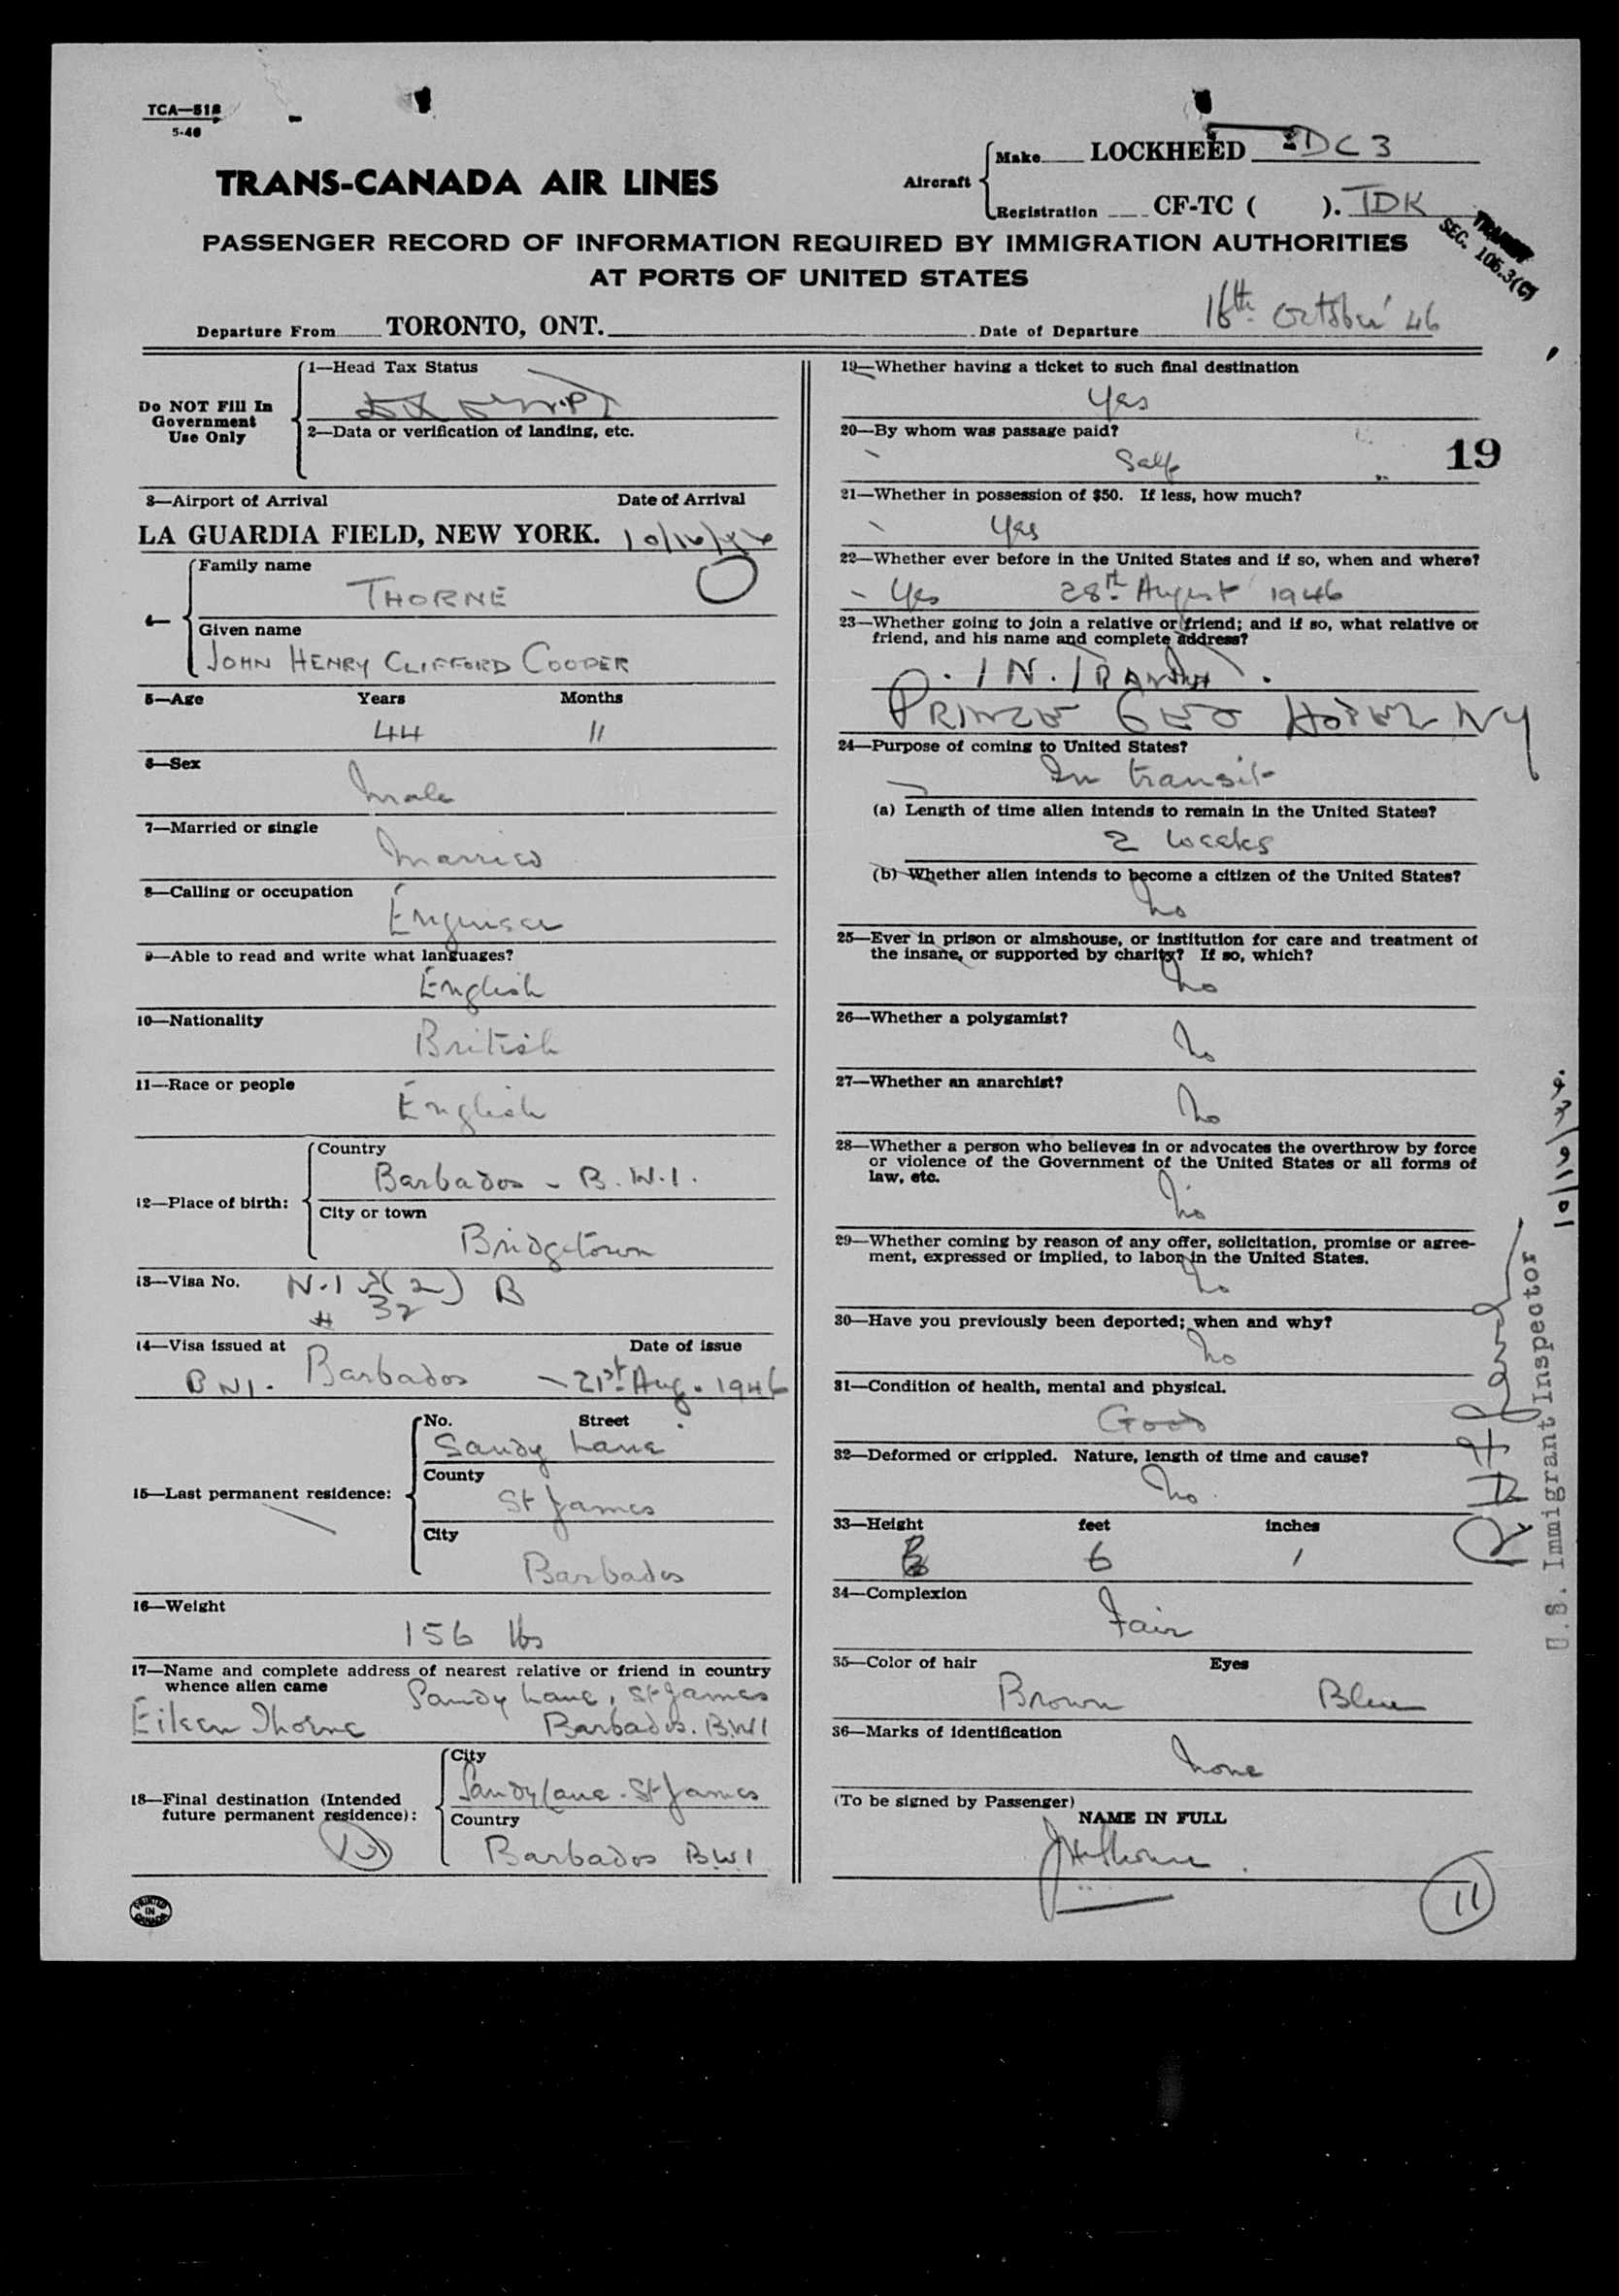 TCA—518
5-46
TRANS-CANADA AIR LINES
Aircraft
Make LOCKHEED DC3
Registration CF-TC ( ). TDK
TRANSIT
SEC. 106.3(C)
PASSENGER RECORD OF INFORMATION REQUIRED BY IMMIGRATION AUTHORITIES
AT PORTS OF UNITED STATES
Departure From TORONTO, ONT. Date of Departure 16th October '46
Do NOT Fill In
Government
Use Only
1—Head Tax Status
2—Data or verification of landing, etc.
3—Airport of Arrival Date of Arrival
LA GUARDIA FIELD, NEW YORK. 10/16/46
4—
Family name
THORNE
Given name
JOHN HENRY CLIFFORD COOPER
5—Age Years Months
44 11
6—Sex
Male
7—Married or single
Married
8—Calling or occupation
Engineer
9—Able to read and write what languages?
English
10—Nationality
British
11—Race or people
English
12—Place of birth:
Country
Barbados - B.W.I.
City or town
Bridgetown
13—Visa No. (2) B
# 32
14—Visa issued at Date of issue
BWI. Barbados - 21st Aug. 1946
15—Last permanent residence:
No. Street
Sandy Lane
County
St James
City
Barbados
16—Weight
156 lbs
17—Name and complete address of nearest relative or friend in country
whence alien came Sandy Lane, St James
Eileen Thorne Barbados. BWI
18—Final destination (Intended
future permanent residence):
City
Sandy Lane. St James
Country
Barbados B.W.I
PRINTED
IN
CANADA
19—Whether having a ticket to such final destination
Yes
20—By whom was passage paid?
Self
19
21—Whether in possession of $50. If less, how much?
Yes
22—Whether ever before in the United States and if so, when and where?
- Yes 28th August 1946
23—Whether going to join a relative or friend; and if so, what relative or
friend, and his name and complete address?
IN TRANSIT.
PRINCE GEO HOTEL NY
24—Purpose of coming to United States?
In transit
(a) Length of time alien intends to remain in the United States?
2 weeks
(b) Whether alien intends to become a citizen of the United States?
No
25—Ever in prison or almshouse, or institution for care and treatment of
the insane, or supported by charity? If so, which?
No
26—Whether a polygamist?
No
27—Whether an anarchist?
No
28—Whether a person who believes in or advocates the overthrow by force
or violence of the Government of the United States or all forms of
law, etc.
No
29—Whether coming by reason of any offer, solicitation, promise or agree-
ment, expressed or implied, to labor in the United States.
No
30—Have you previously been deported; when and why?
No
31—Condition of health, mental and physical.
Good
32—Deformed or crippled. Nature, length of time and cause?
No.
33—Height feet inches
6 1
34—Complexion
Fair
35—Color of hair Eyes
Brown Blue
36—Marks of identification
None
(To be signed by Passenger)
NAME IN FULL
JHThorne
11
U.S. Immigrant Inspector